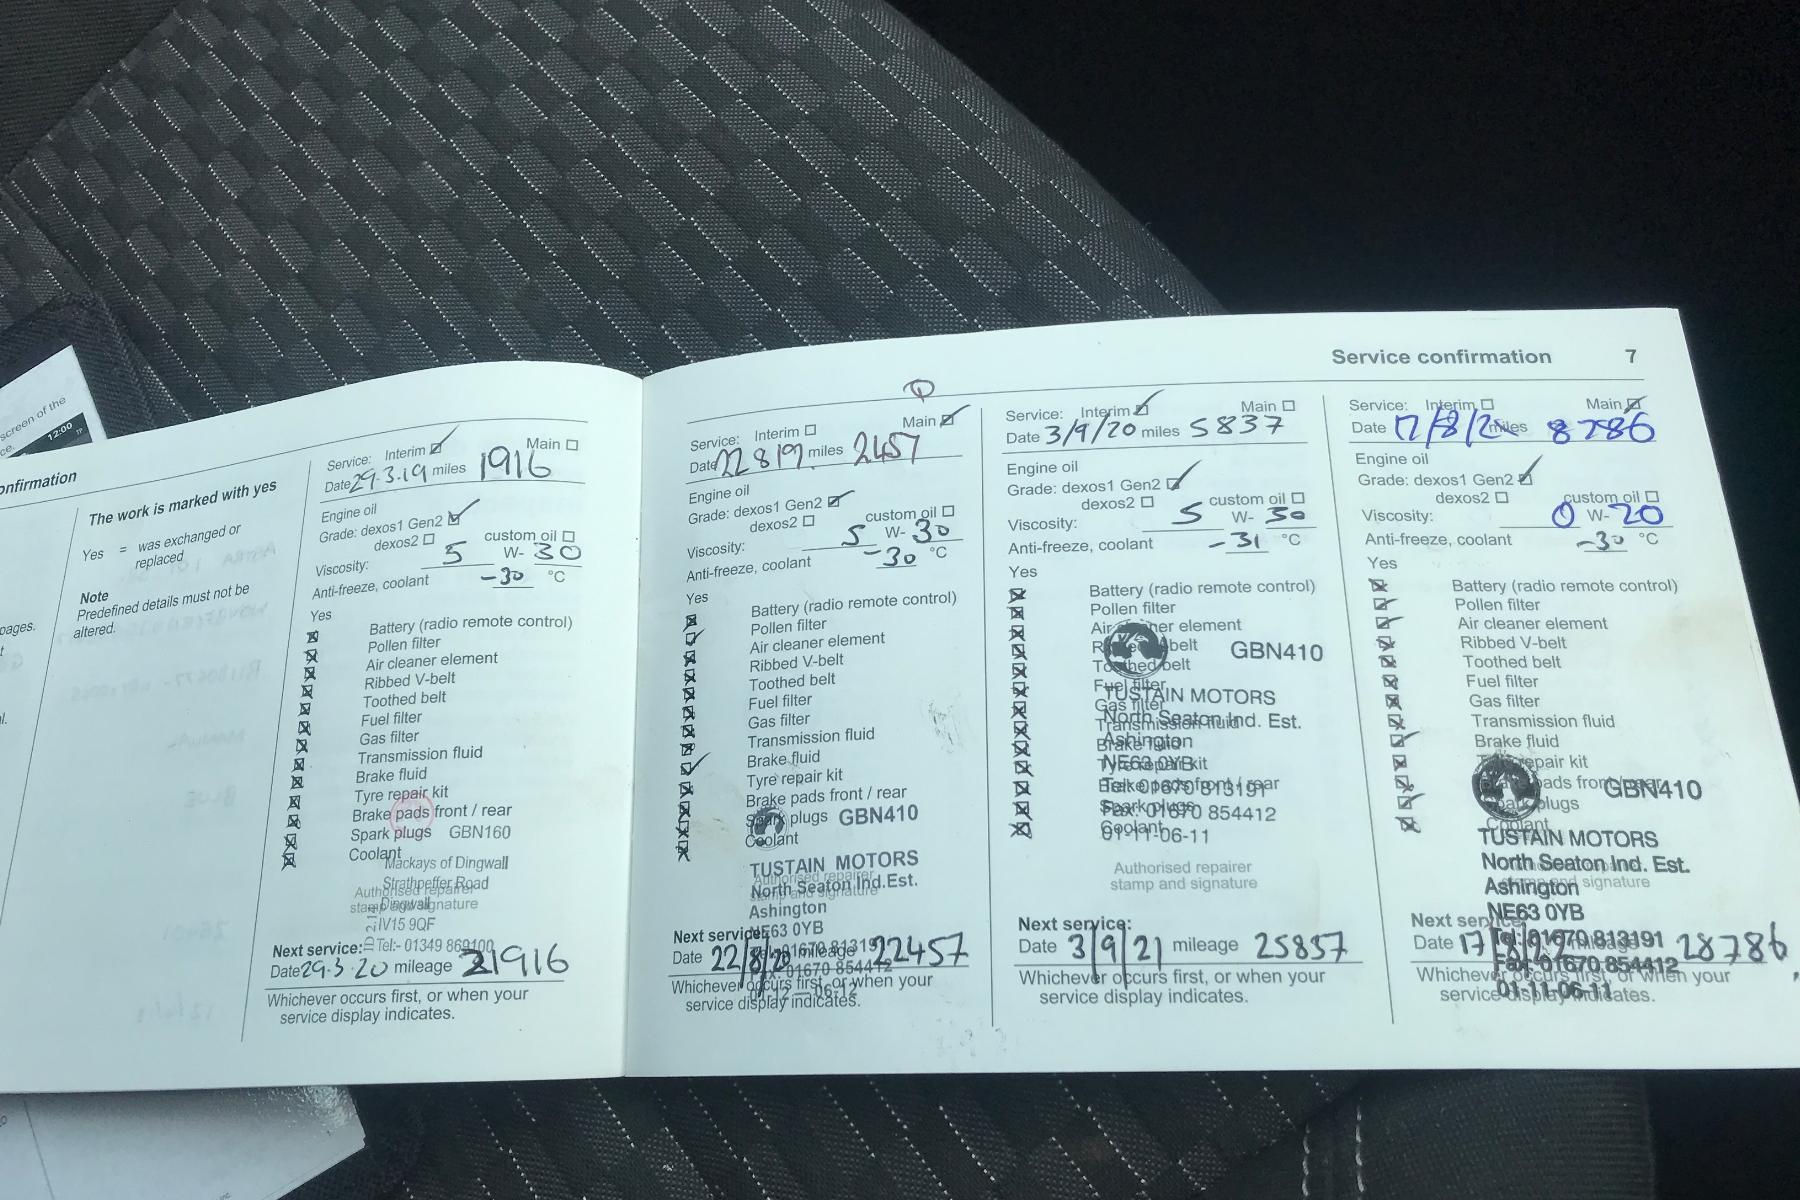 screen of the
ce.
12:00
onfirmation
pages.
The work is marked with yes
Yes = was exchanged or
replaced
Note
Predefined details must not be
altered.
Service: Interim Main
Date 29.3.19 miles 1916
Engine oil
Grade: dexos1 Gen2
dexos2 custom oil
Viscosity: 5 W- 30
Anti-freeze, coolant -30 °C
Yes
Battery (radio remote control)
Pollen filter
Air cleaner element
Ribbed V-belt
Toothed belt
Fuel filter
Gas filter
Transmission fluid
Brake fluid
Tyre repair kit
Brake pads front / rear
Spark plugs GBN160
Coolant
Mackays of Dingwall
Strathpeffer Road
Authorised repairer
Dingwall
stamp and signature
IV15 9QF
Tel:- 01349 869100
Next service:
Date 29.3.20 mileage 21916
Whichever occurs first, or when your
service display indicates.
Service confirmation 7
Service: Interim Main
Date 22 8 19. miles 2457
Engine oil
Grade: dexos1 Gen2
dexos2 custom oil
Viscosity: 5 W- 30
Anti-freeze, coolant -30 °C
Yes
Battery (radio remote control)
Pollen filter
Air cleaner element
Ribbed V-belt
Toothed belt
Fuel filter
Gas filter
Transmission fluid
Brake fluid
Tyre repair kit
Brake pads front / rear
Spark plugs GBN410
Coolant
TUSTAIN MOTORS
Authorised repairer
North Seaton Ind. Est.
stamp and signature
Ashington
NE63 0YB
Next service:
Tel: 01670 813191
Date 22/8/20 mileage 22457
Fax: 01670 854412
Whichever occurs first, or when your
service display indicates.
Service: Interim Main
Date 3/9/20 miles 5837
Engine oil
Grade: dexos1 Gen2
dexos2 custom oil
Viscosity: 5 W- 30
Anti-freeze, coolant -31 °C
Yes
Battery (radio remote control)
Pollen filter
Air cleaner element
Ribbed V-belt
GBN410
Toothed belt
Fuel filter
TUSTAIN MOTORS
Gas filter
North Seaton Ind. Est.
Transmission fluid
Ashington
Brake fluid
NE63 0YB
Tyre repair kit
Tel: 01670 813191
Brake pads front / rear
Fax: 01670 854412
Spark plugs
01-11-06-11
Coolant
Authorised repairer
stamp and signature
Next service:
Date 3/9/21 mileage 25837
Whichever occurs first, or when your
service display indicates.
Service: Interim Main
Date 17/8/21 miles 8786
Engine oil
Grade: dexos1 Gen2
dexos2 custom oil
Viscosity: 0 W- 20
Anti-freeze, coolant -30 °C
Yes
Battery (radio remote control)
Pollen filter
Air cleaner element
Ribbed V-belt
Toothed belt
Fuel filter
Gas filter
Transmission fluid
Brake fluid
Tyre repair kit
Brake pads front / rear
GBN410
Spark plugs
Coolant
TUSTAIN MOTORS
North Seaton Ind. Est.
stamp and signature
Ashington
NE63 0YB
Next service:
Tel: 01670 813191
Date 17/8/22 mileage 28786
Fax: 01670 854412
Whichever occurs first, or when your
01-11-06-11
service display indicates.